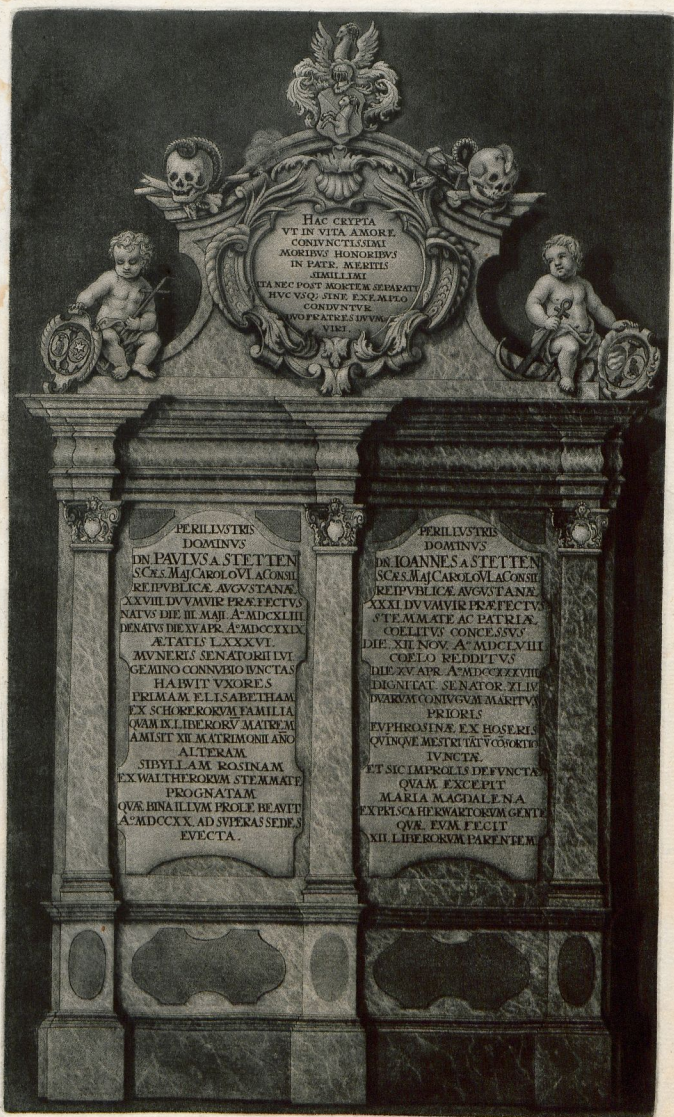 HAC CRYPTA
VT IN VITA AMORE
CONIVNCTISSIMI
MORIBVS HONORIBVS
IN PATR. MERITIS
SIMILLIMI
ITA NEC POST MORTEM SEPARATI
HVC VSQ; SINE EXEMPLO
CONDVNTVR
DVO FRATRES DVVM
VIRI.
PERILLVSTRIS
DOMINVS
DN. PAVLVS A. STETTEN
S. CÆS. MAJ. CAROLO VI. A CONSIL
REIPVBLICÆ AVGVSTANÆ
XXVIII. DVVMVIR PRÆFECTVS
NATVS DIE III. MAJI. Aº MDCXLIII
DENATVS DIE XV APR. Aº MDCCXXIX
ÆTATIS LXXXVI.
MVNERIS SENATORII LVI
GEMINO CONNVBIO IVNCTAS
HABVIT VXORES
PRIMAM ELISABETHAM
EX SCHORERORVM FAMILIA
QVAM IX. LIBERORV̄ MATREM
AMISIT XII MATRIMONII AÑO
ALTERAM
SIBYLLAM ROSINAM
EX WALTHERORVM STEMMATE
PROGNATAM
QVÆ BINA ILLVM PROLE BEAVIT
Aº MDCCXX. AD SVPERAS SEDES
EVECTA.
PERILLVSTRIS
DOMINVS
DN. IOANNES A STETTEN
S. CÆS. MAJ. CAROLO VI. A CONSIL
REIPVBLICÆ AVGVSTANÆ
XXXI. DVVMVIR PRÆFECTVS
STEMMATE AC PATRIÆ
COELITVS CONCESSVS
DIE. XII. NOV. Aº MDCLVIII
COELO REDDITVS
DIE XV. APR. Aº MDCCXXXVIII
DIGNITAT. SENATOR. XLIV
DVARVM CONIVGVM MARITVS
PRIORIS
EVPHROSINÆ, EX HOSERIS
QVINQVE MESTRITĀTV̄ CŌSORTIO
IVNCTÆ
ET SIC IMPROLIS DEFVNCTÆ
QVAM EXCEPIT
MARIA MAGDALENA
EX PRISCA HERWARTORVM GENTE
QVÆ EVM FECIT
XII. LIBERORVM PARENTEM